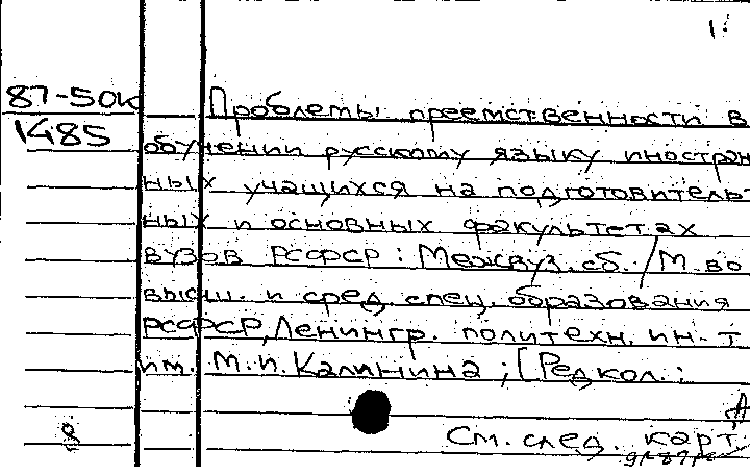 1.
87-50к
1485
Проблемы преемственности в
обучении русскому языку иностран
ных учащихся на подготовитель-
ных и основных факультетах
вузов РСФСР : Межвуз. сб. / М. во
высш. и сред. спец. образования
РСФСР, Ленингр. политехн. ин-т
им. М. И. Калинина ; [Редкол. :
См. след. карт.
8